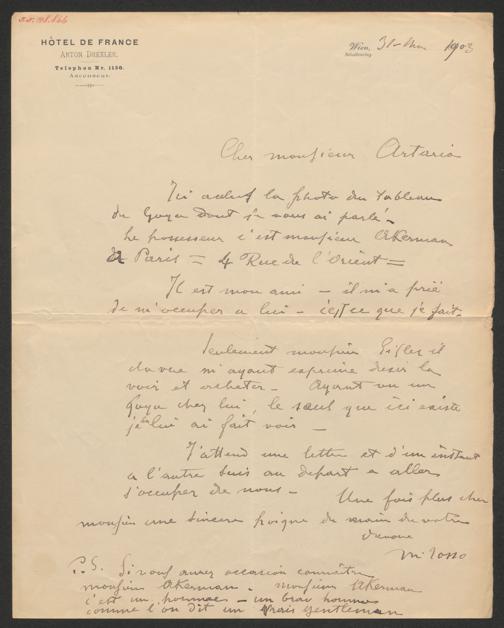 HÔTEL DE FRANCE
ANTON DREXLER.
Telephon Nr. 1156.
ASCENSEUR.
Wien, 31 1903
Schottenring
Cher monsieur Artaria
Ici la photo du tableau
du Goya dont je vous ai parlé -
Le possesseur c'est monsieur Akerman
Paris = 4 Rue de l'Orient =
Il est mon ami - il m'a prié
de m'occuper a lui - c'est ce que je fait.
Seulement monsieur
m'ayant exprime desir la
voir et acheter - Ayant vu un
Goya chez lui, le seul que ici existe
je lui ai fait voir -
J'attend une lettre et d'un instant
a l'autre suis au depart e aller
s'occuper de nous - Une fois plus cher
monsieur une sincere poigne de main du votre
devoue
M. Rosso
P.S. Si vous avez occasion connaitre
monsieur Akerman. monsieur Akerman
c'est un hommes - un brav hommes
comme l'on dit un vrais gentleman